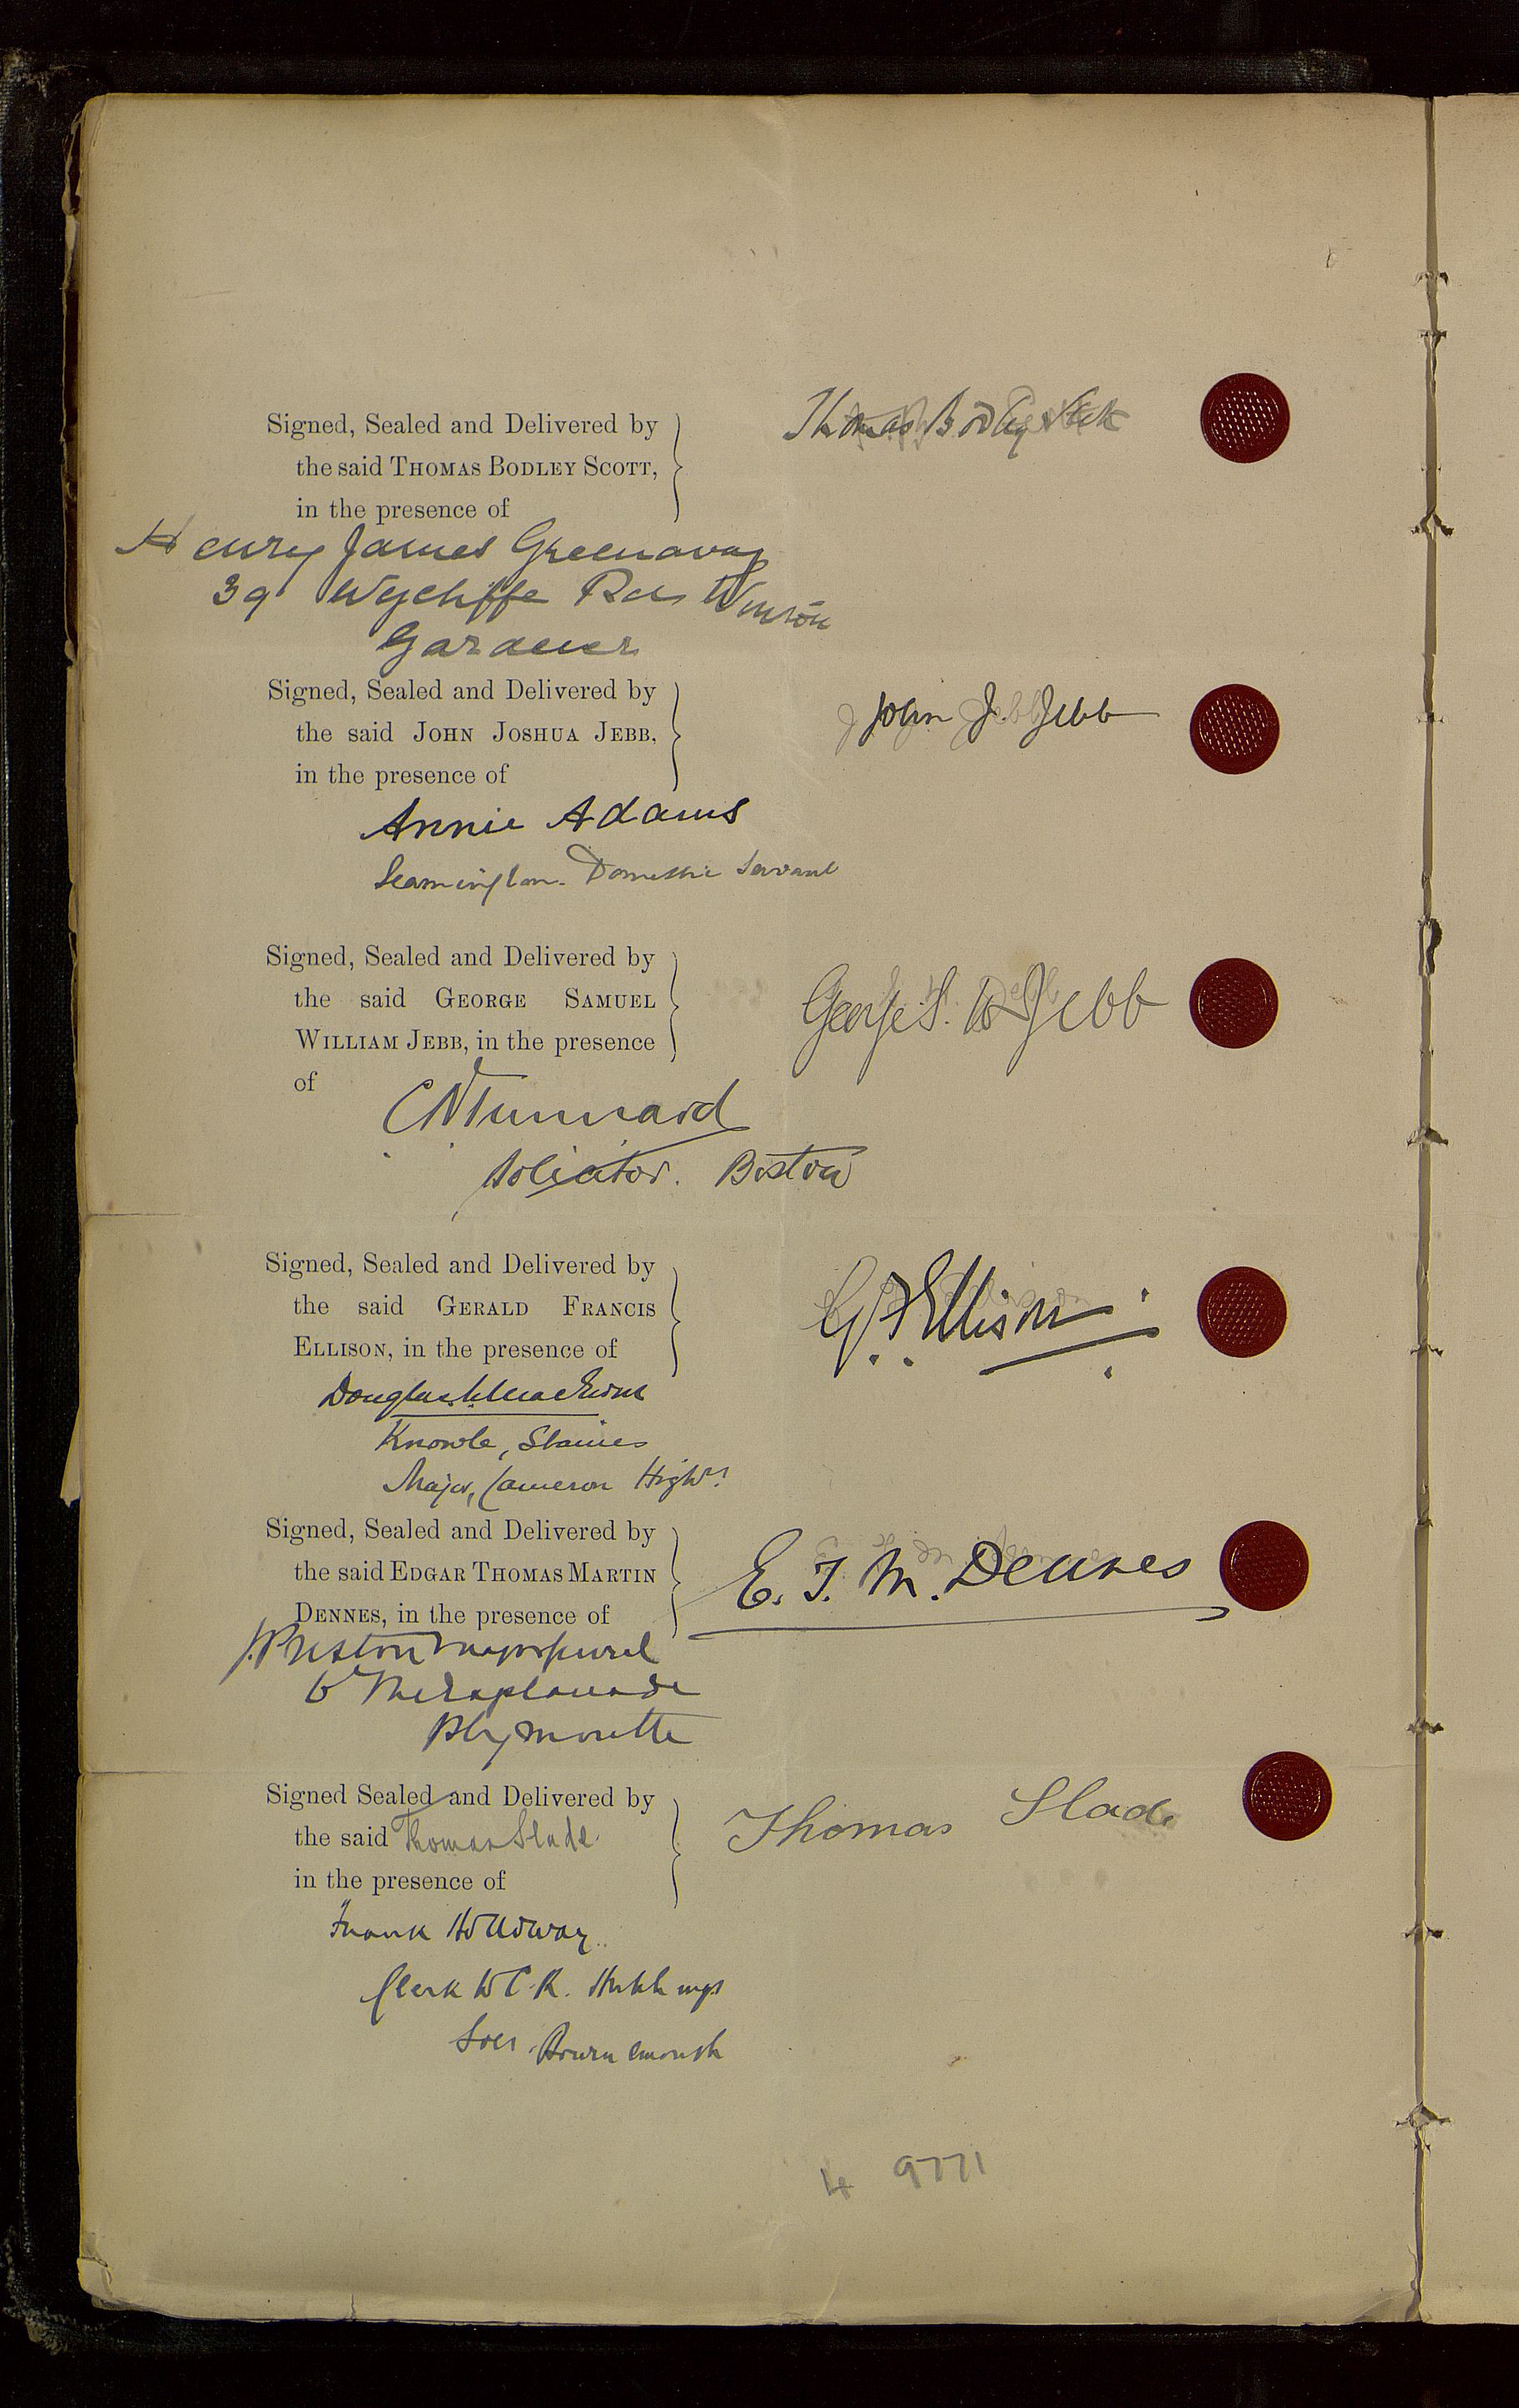 Signed, Sealed and Delivered by
the said THOMAS BODLEY SCOTT,
in the presence of
Thomas Bodley Scott
Henry James Greenaway
39 Wycliffe Rd Winton
Gardener
Signed, Sealed and Delivered by
the said JOHN JOSHUA JEBB,
in the presence of
John J. Jebb
Annie Adams
Leamington. Domestic Servant
Signed, Sealed and Delivered by
the said GEORGE SAMUEL
WILLIAM JEBB, in the presence
of
George S. W Jebb
C N Tunnard
Solicitor. Boston
Signed, Sealed and Delivered by
the said GERALD FRANCIS
ELLISON, in the presence of
G F Ellison
Douglas
Knowle, Staines
Major, Cameron Highrs
Signed, Sealed and Delivered by
the said EDGAR THOMAS MARTIN
DENNES, in the presence of
E. T. M. Dennes
Preston
6 The Esplanade
Plymouth
Signed Sealed and Delivered by
the said Thomas Slade
in the presence of
Thomas Slade
Frank Holloway
Clerk W C. R.
Solr. Bournemouth
4 9771